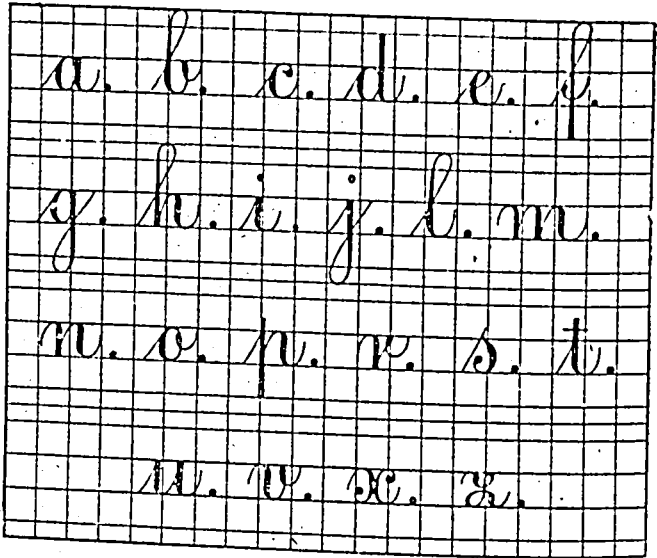 a. b. c. d. e. f.
g. h. i. j. l. m.
n. o. p. r. s. t.
u. v. x. z.